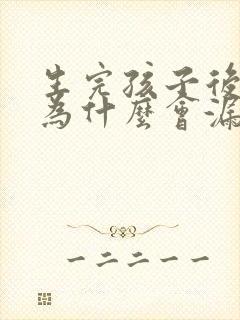 生完孩子後
為什麼會漏
一二二一一